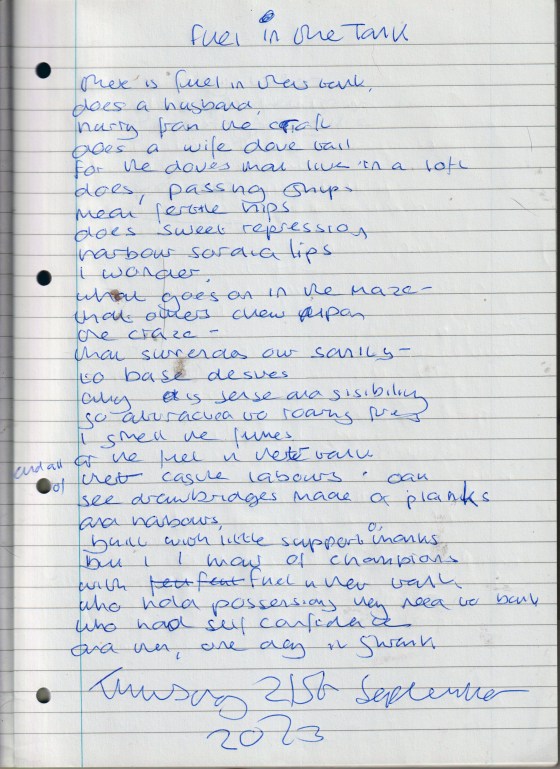 Fuel in the Tank
there is fuel in their tank,
does a husband,
hurry from the craft
does a wife dove tail
for the doves that live in a loft
does, passing ships
mean fertile hips
does sweet repression
harbour sordid lips
I wonder,
what goes on in the maze -
that others chew upon
the craze -
that surrenders our sanity -
to base desires
why is sense and
so attracted to roaring fires
I smell the fumes
of the fuel in their tank
and all of
their castle labours can
see drawbridges made of planks
and harbours,
built with little support or thanks
but I know of champions
with fuel in their tank
who hold possessions they need to bank
who had self confidence
and then, one day it shrank
Thursday 21st September
2023